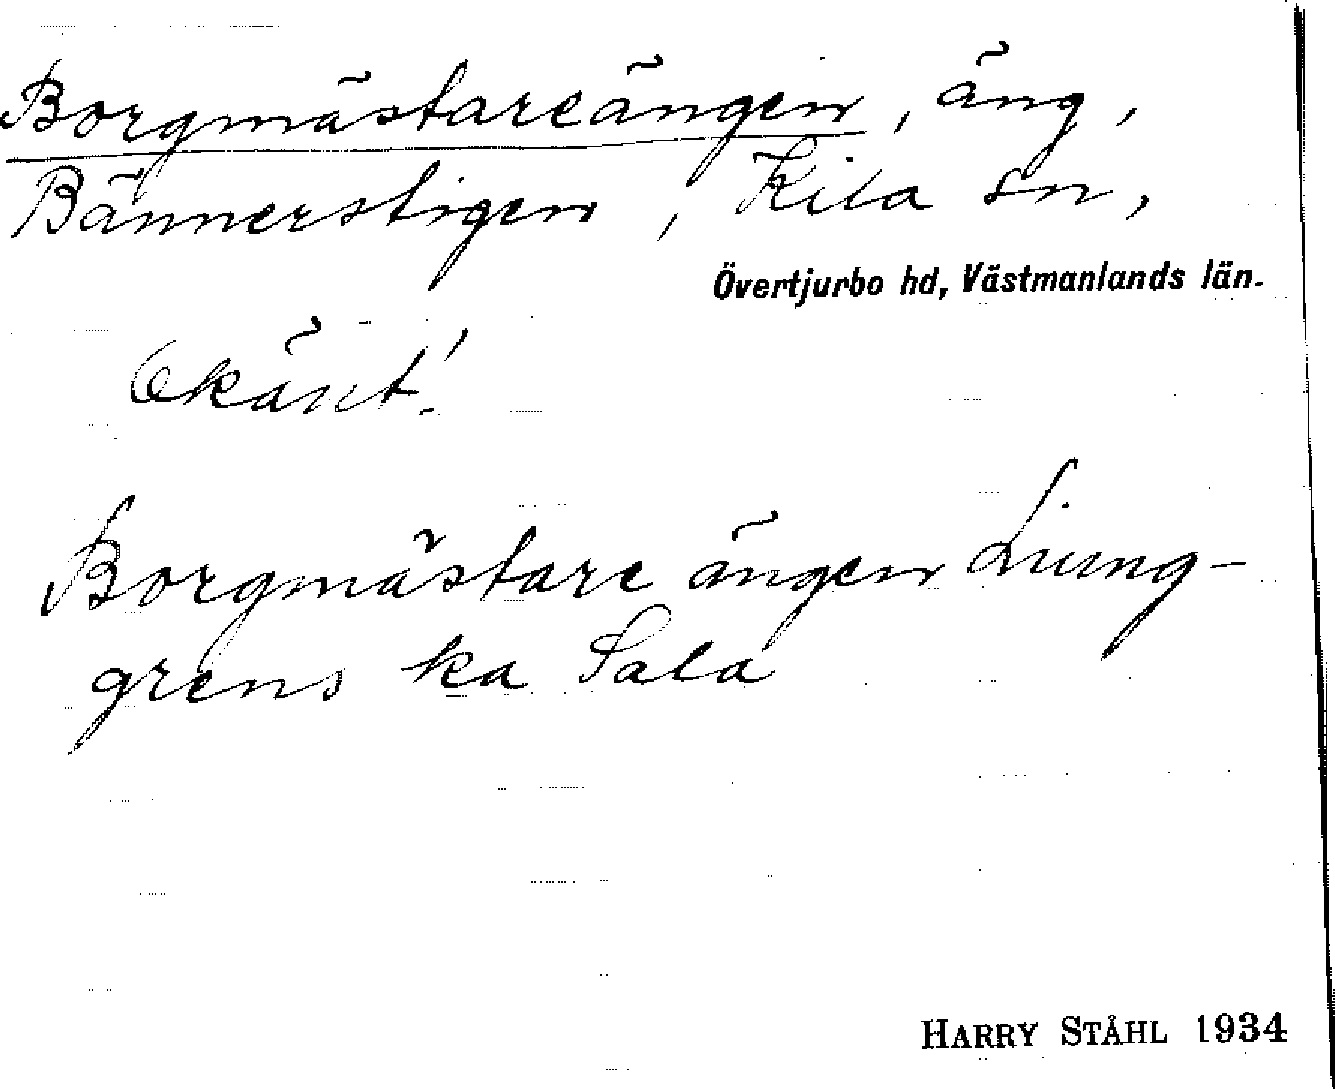 Borgmästareängen, äng,
Bännerstigen, Kila sn,
Övertjurbo hd, Västmanlands län.
Okänt!
Borgmästare ängen Liung-
grens ka Sala
HARRY STÅHL 1934